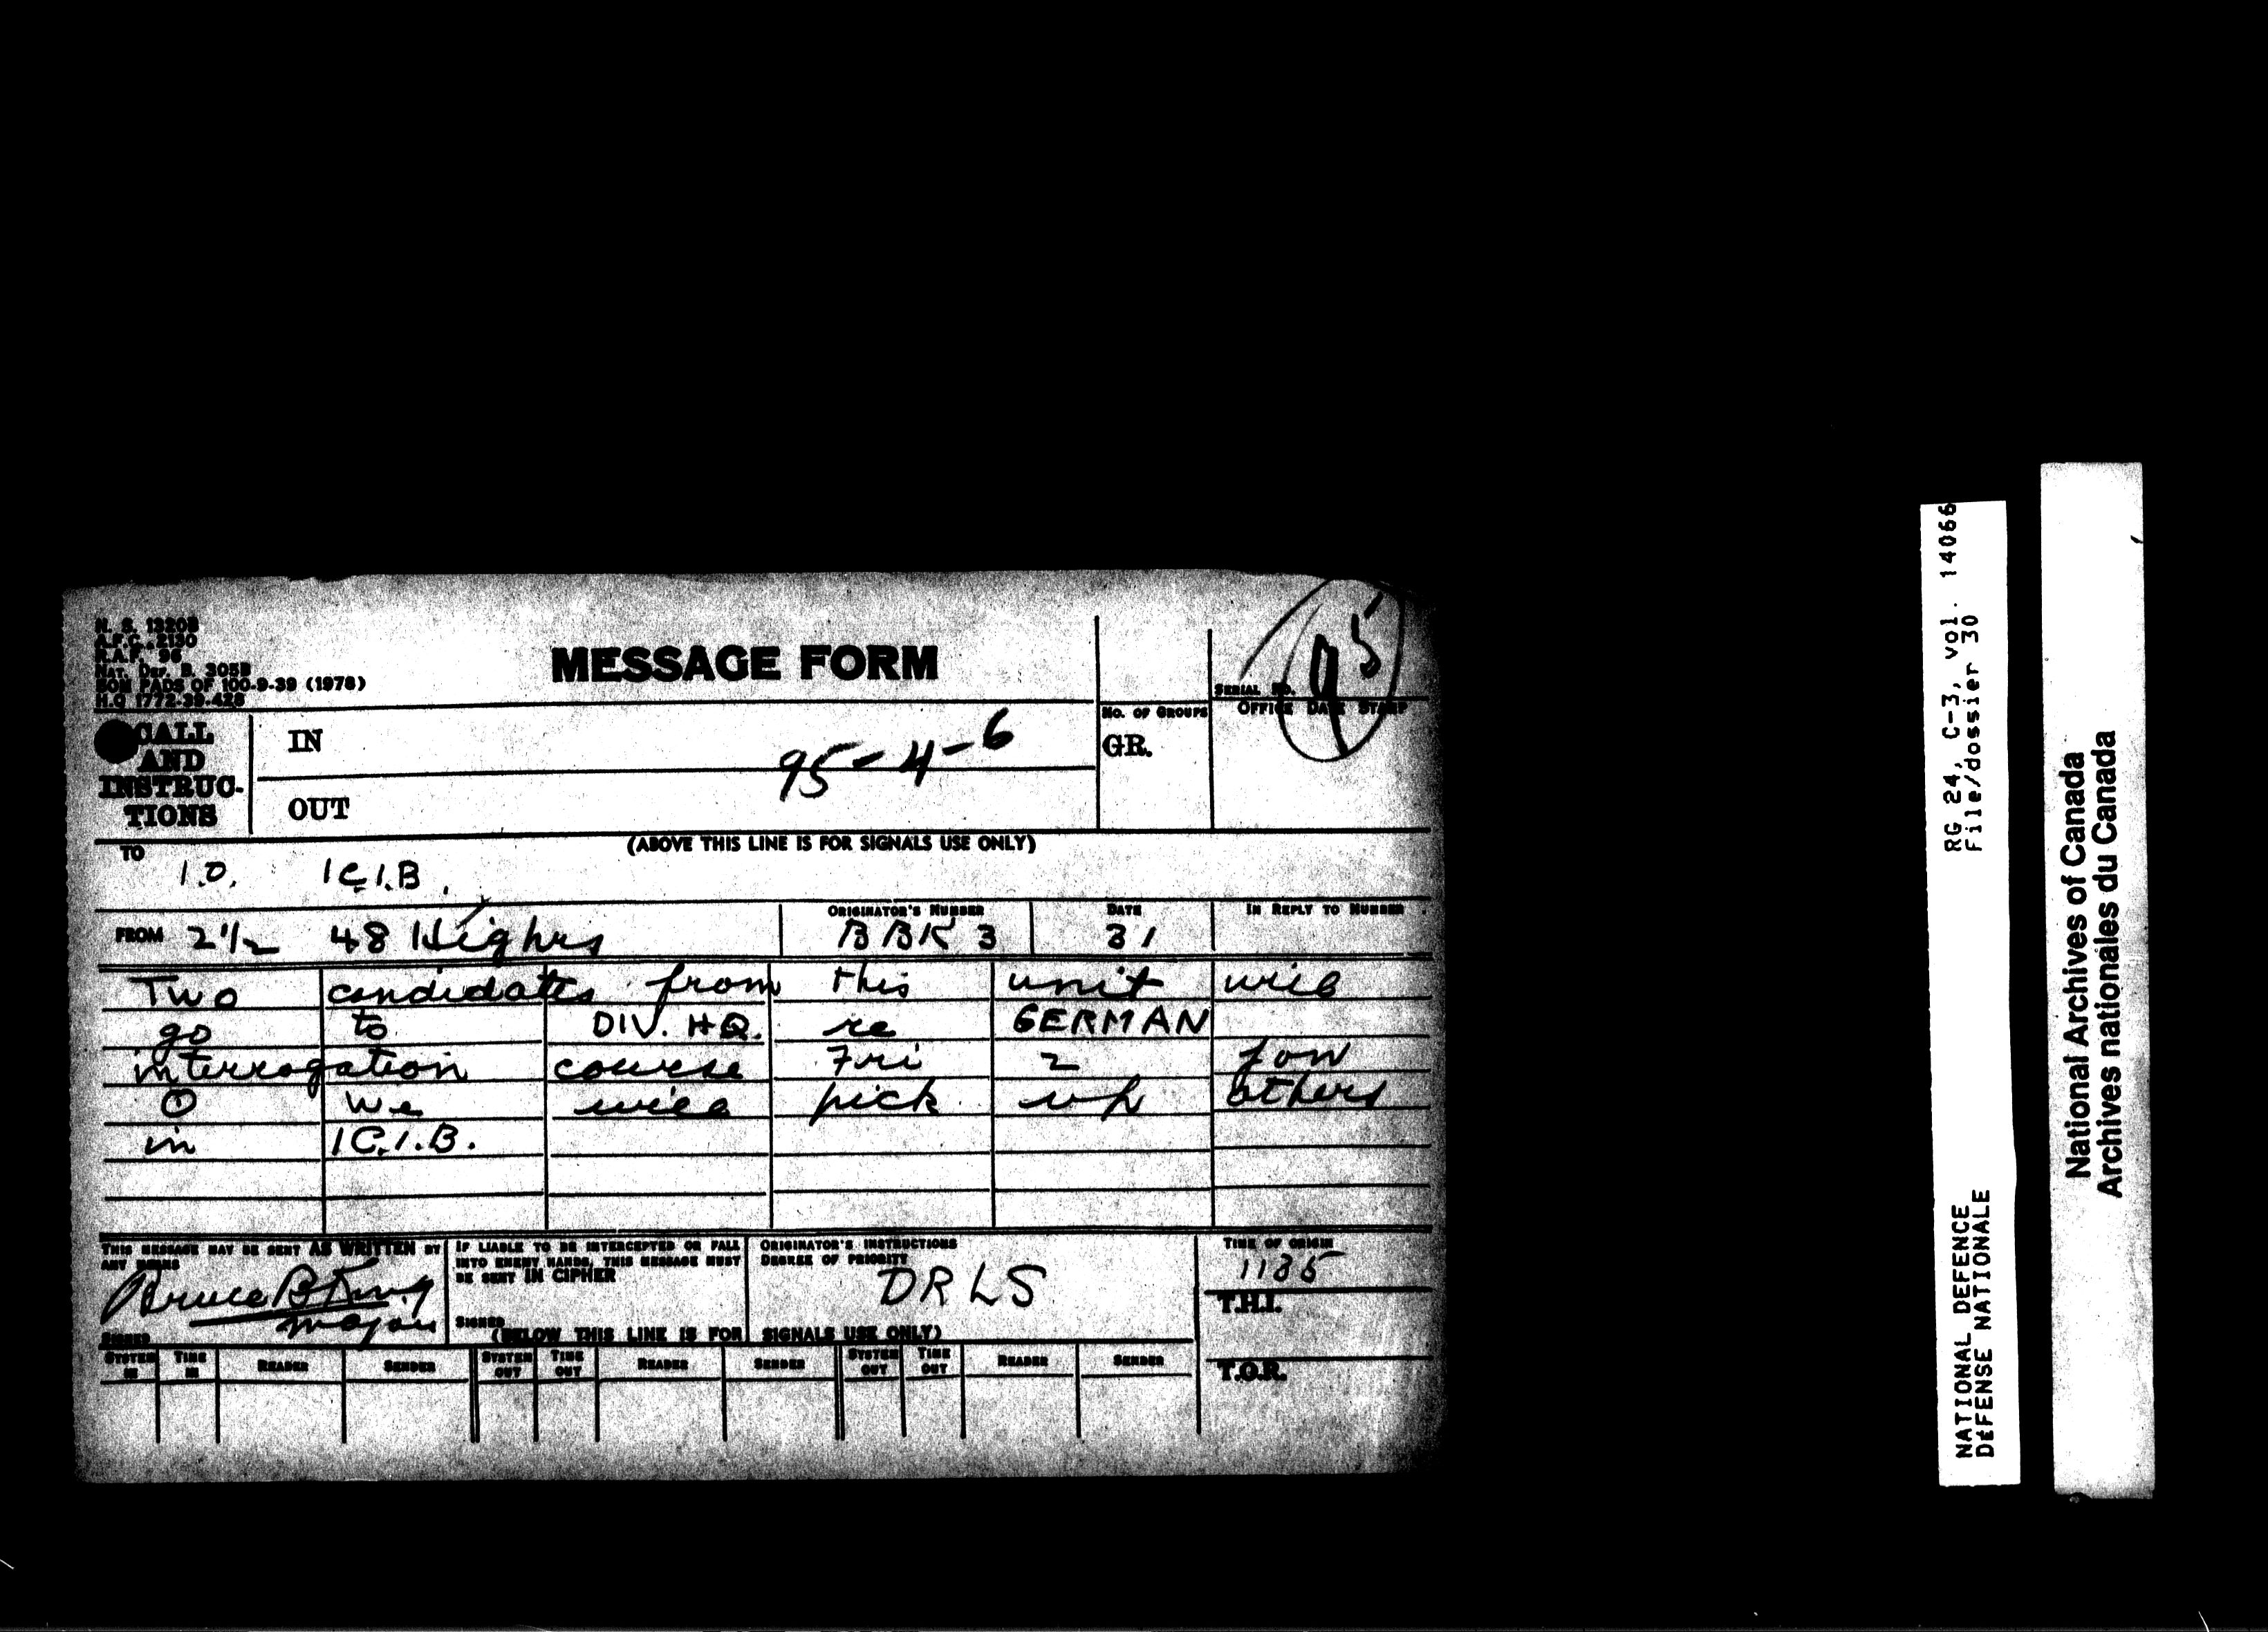 N. S. 1320B
A.F.C. 2130
R.A.F. 96
NAT. DEF. B. 305B
50M PADS OF 100-9-39 (1978)
H.Q 1772-39-426
MESSAGE FORM
SERIAL NO.
95
CALL AND INSTRUC-TIONS
IN
OUT
95-4-6
NO. OF GROUPS
GR.
OFFICE DATE STAMP
(ABOVE THIS LINE IS FOR SIGNALS USE ONLY)
TO
I.O. 1C.I.B.
FROM 2 1/2 48 Highrs
ORIGINATOR'S NUMBER
BBK 3
DATE
31
IN REPLY TO NUMBER
Two candidates from this unit will
go to DIV. HQ. re GERMAN
interrogation course Fri 2
we will pick up others
in 1C.I.B.
THIS MESSAGE MAY BE SENT AS WRITTEN BY
ANY MEANS
Bruce B King
major
SIGNED
IF LIABLE TO BE INTERCEPTED OR FALL
INTO ENEMY HANDS, THIS MESSAGE MUST
BE SENT IN CIPHER
SIGNED
ORIGINATOR'S INSTRUCTIONS
DEGREE OF PRIORITY
DRLS
TIME OF ORIGIN
1135
T.H.I.
T.O.R.
(BELOW THIS LINE IS FOR SIGNALS USE ONLY)
SYSTEM IN TIME IN READER SENDER SYSTEM OUT TIME OUT READER SENDER SYSTEM OUT TIME OUT READER SENDER
RG 24, C-3, vol. 14066
File/dossier 30
NATIONAL DEFENCE
DÉFENSE NATIONALE
National Archives of Canada
Archives nationales du Canada